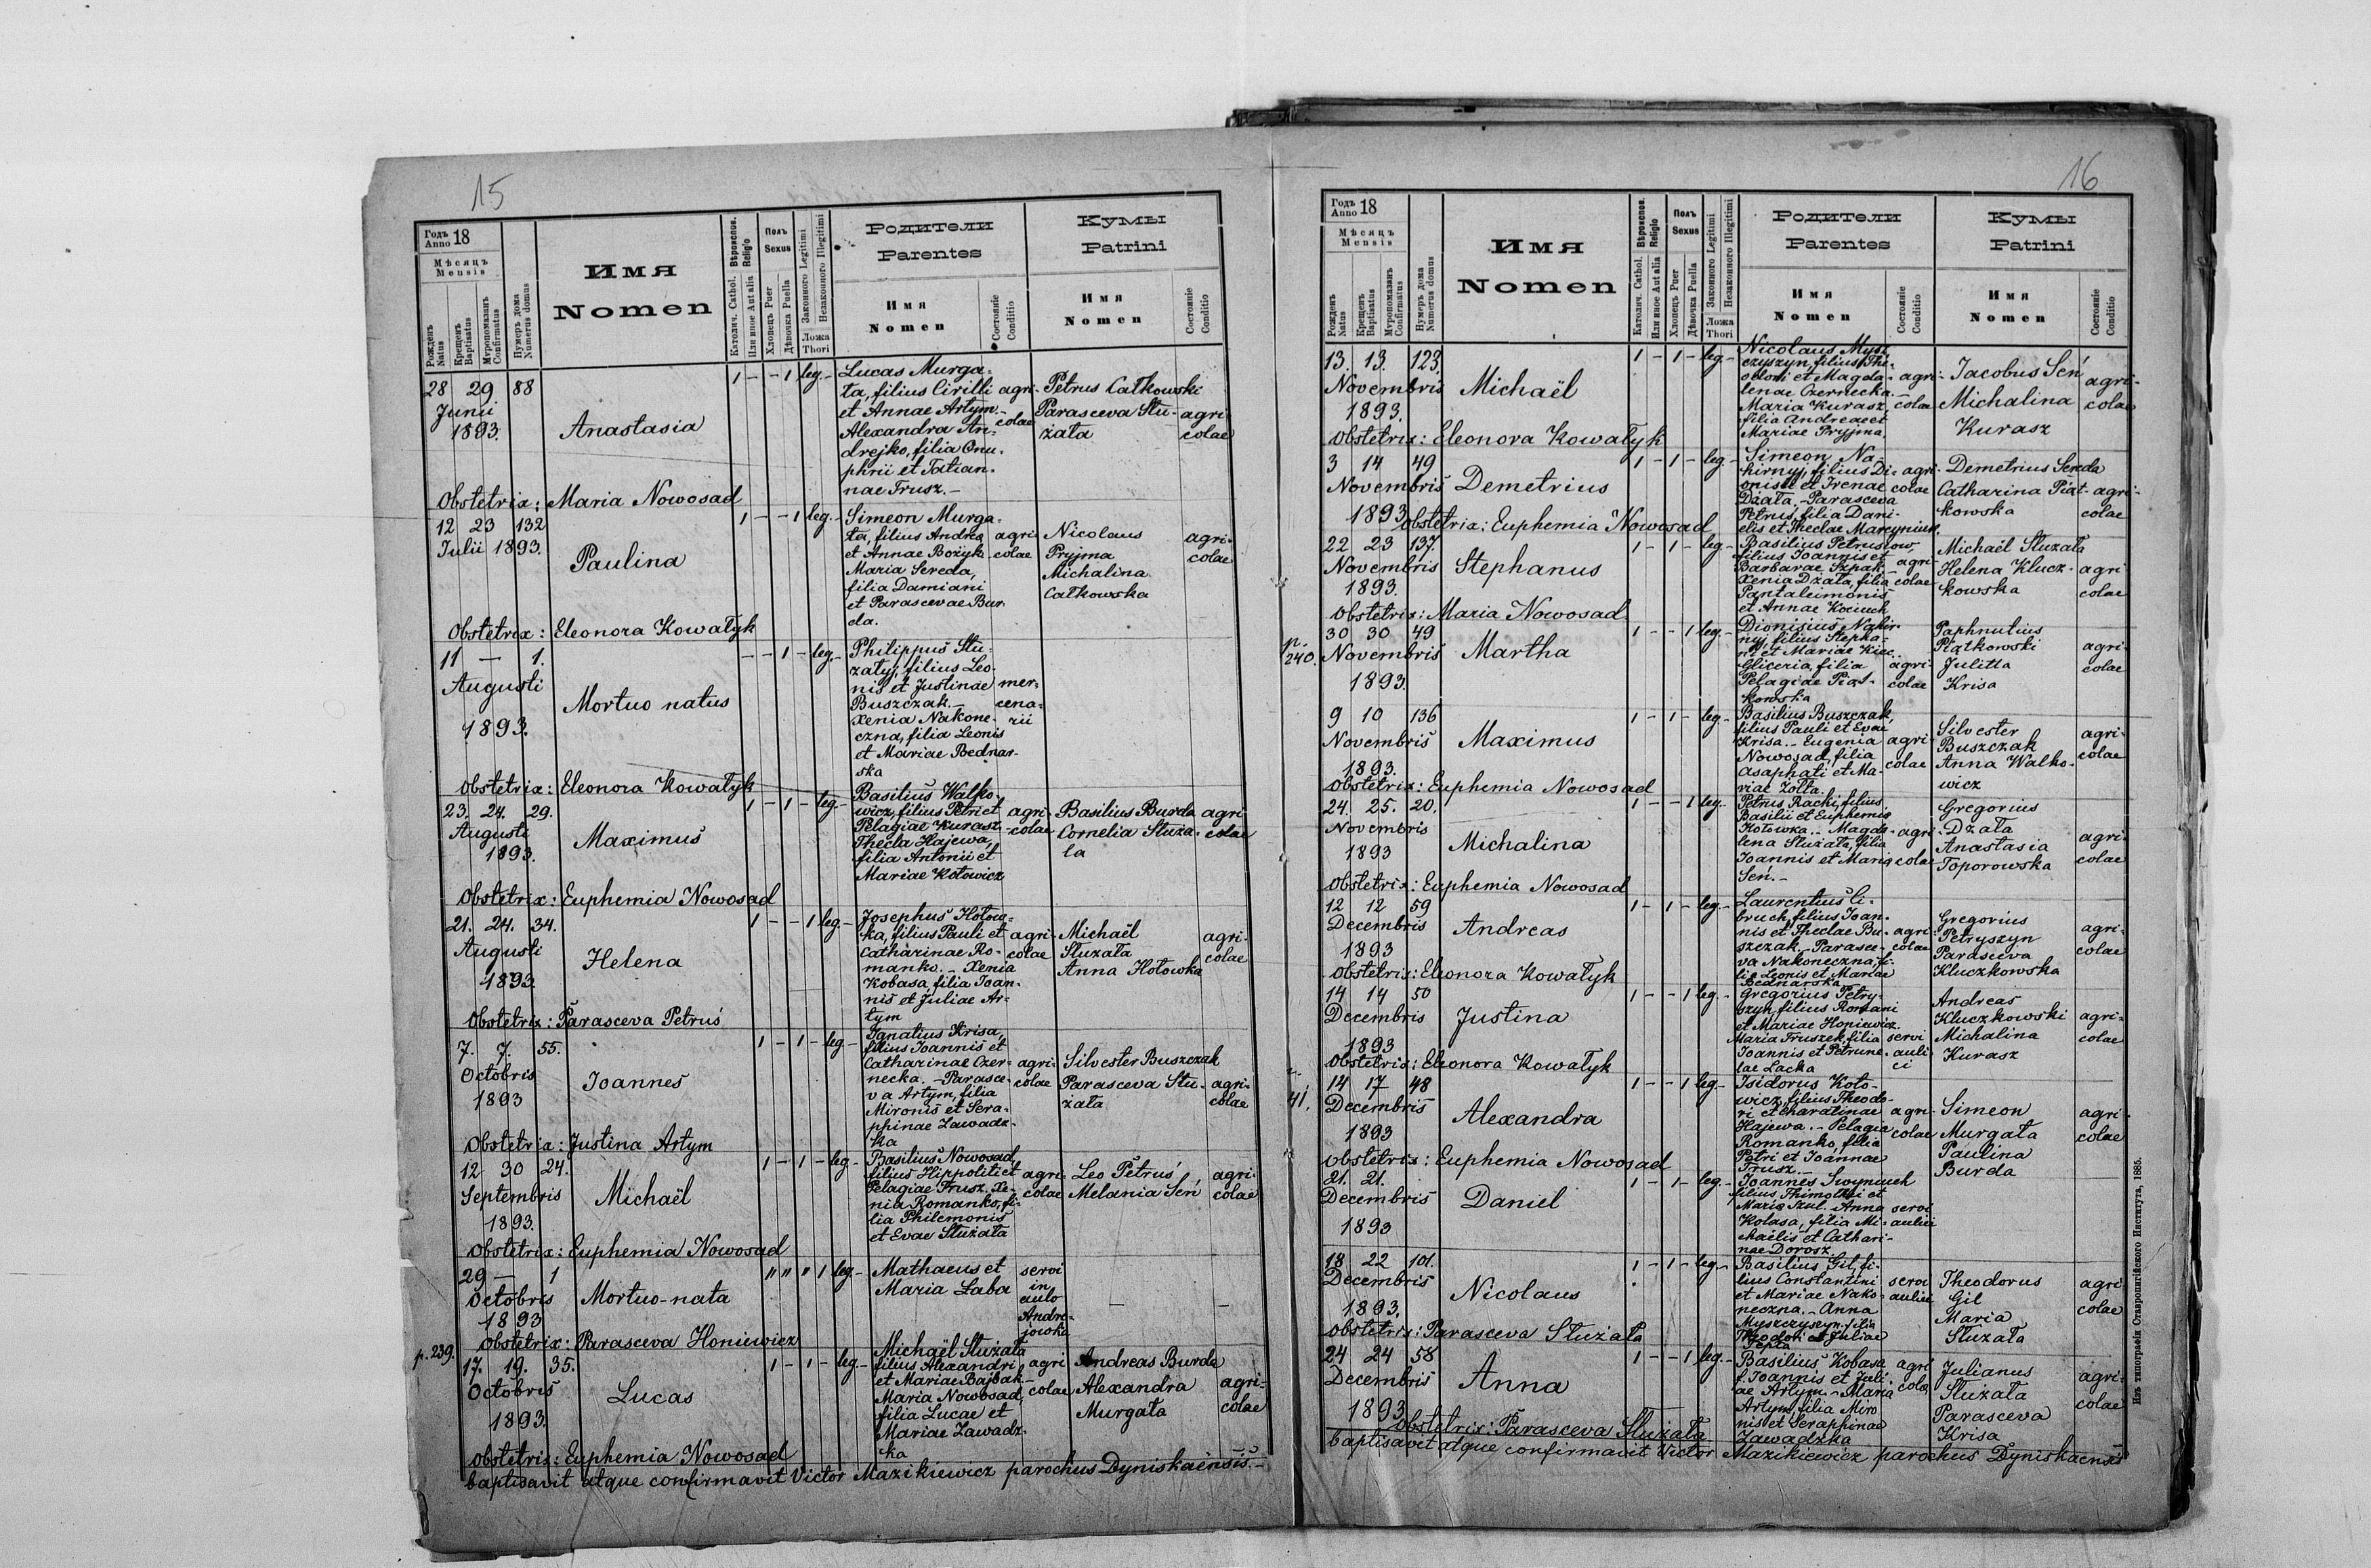 15
Годъ Anno 18
Мѣсяцъ Mensis
Рожденъ Natus
Крещенъ Baptisatus
Муропомазанъ Confirmatus
Нумеръ дома Numerus domus
Имя Nomen
Вѣроиспов. Religio
Католич. Cathol.
Или иное Aut alia
Полъ Sexus
Хлопецъ Puer
Дѣвочка Puella
Законного Legitimi
Незаконного Illegitimi
Ложа Thori
Родители Parentes
Имя Nomen
Состояніе Conditio
Кумы Patrini
Имя Nomen
Состояніе Conditio
28 29 88
Junii
1893.
Anastasia
1 - - 1 leg.-
Lucas Murga-
ta, filius Cirilli
et Annae Artym.-
Alexandra An-
drejko, filia Onu-
phrii et Tatian-
nae Trusz.-
agri-
colae
Petrus Całkowski
Parasceva Stu-
żała
agri-
colae
Obstetrix: Maria Nowosad
12 23 132
Julii 1893.
Paulina
1 - - 1 leg.-
Simeon Murga-
ta, filius Andrea
et Annae Bożyk.
Maria Sereda,
filia Damiani
et Parascevae Bur-
da.
agri-
colae
Nicolaus
Pryjma
Michalina
Całkowska
agri-
colae
Obstetrix: Eleonora Kowałyk
11 — 1.
Augusti
1893.
Mortuo natus
- - 1 - leg.-
Philippus Stu-
zatyj, filius Leo-
nis et Justinae
Buszczak.-
Xenia Nakone-
czna, filia Leonis
et Mariae Bednar-
ska
mer-
cena-
rii
Obstetrix: Eleonora Kowałyk
23. 24. 29.
Augusti
1893.
Maximus
1 - 1 - leg.-
Basilius Walko-
wicz, filius Petri et
Pelagiae Kurasz.-
Thecla Hajewa,
filia Antonii et
Mariae Kotowicz
agri-
colae
Basilius Burda
Cornelia Stuża-
ła
agri-
colae
Obstetrix: Euphemia Nowosad
21. 24. 34.
Augusti
1893.
Helena
1 - - 1 leg.-
Josephus Hołow-
ka, filius Pauli et
Catharinae Ro-
manko.- Xenia
Kobasa, filia Ioan-
nis et Juliae Ar-
tym
agri-
colae
Michaël
Stużała
Anna Hołowka
agri-
colae
Obstetrix: Parasceva Petruś
7. 7. 55.
Octobris
1893
Ioannes
1 - 1 - leg.-
Ignatius Krisa,
filius Ioannis et
Catharinae Czer-
necka.- Parasce-
va Artym, filia
Mironis et Sera-
phinae Zawadz-
ka
agri-
colae
Silvester Buszczak
Parasceva Stu-
żała
agri-
colae
Obstetrix: Justina Artym
12 30 24.
Septembris
1893.
Michaël
1 - 1 - leg.-
Basilius Nowosad,
filius Hippoliti et
Pelagiae Trusz. Xe-
nia Romanko, fi-
lia Philemonis
et Evae Stużała
agri-
colae
Leo Petruś
Melania Seń
agri-
colae
Obstetrix: Euphemia Nowosad
29 — 1
Octobris
1893
Mortuo-nata
" " " 1 leg.-
Mathaeus et
Maria Łaba
servi
in
aulo
Andre-
jowka
— -
Obstetrix: Parasceva Honiewicz
p. 239.
17. 19. 35.
Octobris
1893.
Lucas
1 - 1 - leg.-
Michaël Stużała
filius Alexandri
et Mariae Bajbak.-
Maria Nowosad,
filia Lucae et
Mariae Zawadz-
ka
agri-
colae
Andreas Burda
Alexandra
Murgata
agri-
colae
Obstetrix: Euphemia Nowosad
baptisavit atque confirmavit Victor Mazikiewicz parochus Dyniskaensis.-
16
Годъ Anno 18
Мѣсяцъ Mensis
Рожденъ Natus
Крещенъ Baptisatus
Муропомазанъ Confirmatus
Нумеръ дома Numerus domus
Имя Nomen
Вѣроиспов. Religio
Католич. Cathol.
Или иное Aut alia
Полъ Sexus
Хлопецъ Puer
Дѣвочка Puella
Законного Legitimi
Незаконного Illegitimi
Ложа Thori
Родители Parentes
Имя Nomen
Состояніе Conditio
Кумы Patrini
Имя Nomen
Состояніе Conditio
13. 13. 123.
Novembris
1893.
Michaël
1 - 1 - leg.-
Nicolaus Mysz-
czyszyn, filius The-
odori et Magda-
lenae Czernecka.-
Maria Kurasz,
filia Andreae et
Mariae Pryjma.
agri-
colae
Jacobus Seń
Michalina
Kurasz
agri-
colae
Obstetrix: Eleonora Kowałyk
3 14 49
Novembris
1893
Demetrius
1 - 1 - leg.-
Simeon Na-
hirnyj, filius Di-
onisii et Irenae
Dżała,- Parasceva
Petruś, filia Dani-
elis et Theclae Marcyniuk.
agri-
colae
Demetrius Sereda
Catharina Piąt-
kowska
agri-
colae
Obstetrix: Euphemia Nowosad
22 23 137.
Novembris
1893.
Stephanus
1 - 1 - leg.-
Basilius Petrusiow,
filius Ioannis et
Barbarae Szpak.-
Xenia Dżała, filia
Pantaleimonis
et Annae Kociuch
agri-
colae
Michaël Stużała
Helena Klucz-
kowska
agri-
colae
Obstetrix: Maria Nowosad
p. 240.
30 30 49
Novembris
1893.
Martha
1 - - 1 leg.-
Dionisius Nahir-
nyj, filius Stepha-
ni et Mariae Kuc.
Gliceria, filia
Pelagiae Piąt-
kowska
agri-
colae
Paphnutius
Piątkowski
Julitta
Krisa
agri-
colae
9 10 136
Novembris
1893.
Maximus
1 - 1 - leg.-
Basilius Buszczak,
filius Pauli et Evae
Krisa.- Eugenia
Nowosad, filia
Asaphati et Ma-
riae Żołta.
agri-
colae
Silvester
Buszczak
Anna Walko-
wicz
agri-
colae
Obstetrix: Euphemia Nowosad
24. 25. 20.
Novembris
1893
Michalina
1 - - 1 leg.-
Petrus Racki, filius
Basilii et Euphemiae
Hołowka.- Magda-
lena Stużała, filia
Ioannis et Maria
Seń.-
agri-
colae
Gregorius
Dżała
Anastasia
Toporowska
agri-
colae
Obstetrix: Euphemia Nowosad
12 12 59
Decembris
1893
Andreas
1 - 1 - leg.-
Laurentius Ci-
bruch, filius Ioan-
nis et Theclae Bu-
szczak.- Parasce-
va Nakoneczna, fi-
lia Leonis et Mariae
Bednarska
agri-
colae
Gregorius
Petryszyn
Parasceva
Kluczkowska
agri-
colae
Obstetrix: Eleonora Kowałyk
14 14 50
Decembris
1893
Justina
1 - - 1 leg.-
Gregorius Petry-
czyk, filius Romani
et Mariae Honiewicz.
Maria Truszek, filia
Ioannis et Petrune-
lae Łacka
servi
auli
ci
Andreas
Kluczkowski
Michalina
Kurasz
agri-
colae
Obstetrix: Eleonora Kowałyk
41.
14 17 48
Decembris
1893
Alexandra
1 - - 1 leg.-
Isidorus Koto-
wicz, filius Theodo-
ri et Charatinae
Hajewa.- Pelagia
Romanko, filia
Petri et Ioannae
Trusz.-
agri-
colae
Simeon
Murgata
Paulina
Burda
agri-
colae
Obstetrix: Euphemia Nowosad
21. 21.
Decembris
1893
Daniel
1 - 1 - leg.-
Ioannes Swyniuch
filius Thimothei et
Maria Szul.- Anna
Kolasa, filia Mi-
chaëlis et Cathari-
nae Dorosz
servi
aulici
18 22 101.
Decembris
1893.
Nicolaus
1 - 1 - leg.-
Basilius Gil, fi-
lius Constantini
et Mariae Nako-
neczna.- Anna
Myszczyszyn, filia
Theodori et Juliae
servi
aulici
Theodorus
Gil
Maria
Stużała
agri-
colae
Obstetrix: Parasceva Stużała
24 24 58
Decembris
1893
Anna
1 - - 1 leg.-
Basilius Kobasa
f. Ioannis et Juli-
ae Artym.- Maria
Artym, filia Miro
nis et Seraphinae
Zawadzka
agri
colae
Julianus
Stużała
Parasceva
Krisa
agri-
colae
Obstetrix: Parasceva Stużała
baptisavit atque confirmavit Victor Mazikiewicz parochus Dyniskaensis
Изъ типографіи Ставропигійского Института, 1885.